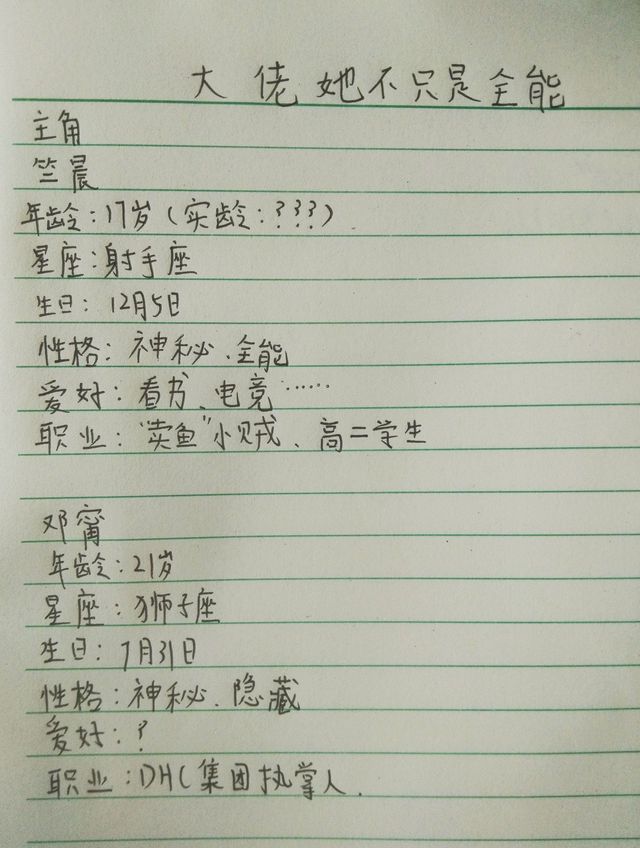 大佬她不只是全能
主角
竺晨
年龄：17岁（实龄：???）.
星座：射手座
生日：12月5日
性格：神秘、全能
爱好：看书、电竞……
职业：“卖鱼”小贼、高二学生
邓甯
年龄：21岁
星座：狮子座
生日：7月31日
性格：神秘、隐藏
爱好：?
职业：DHC集团执掌人.